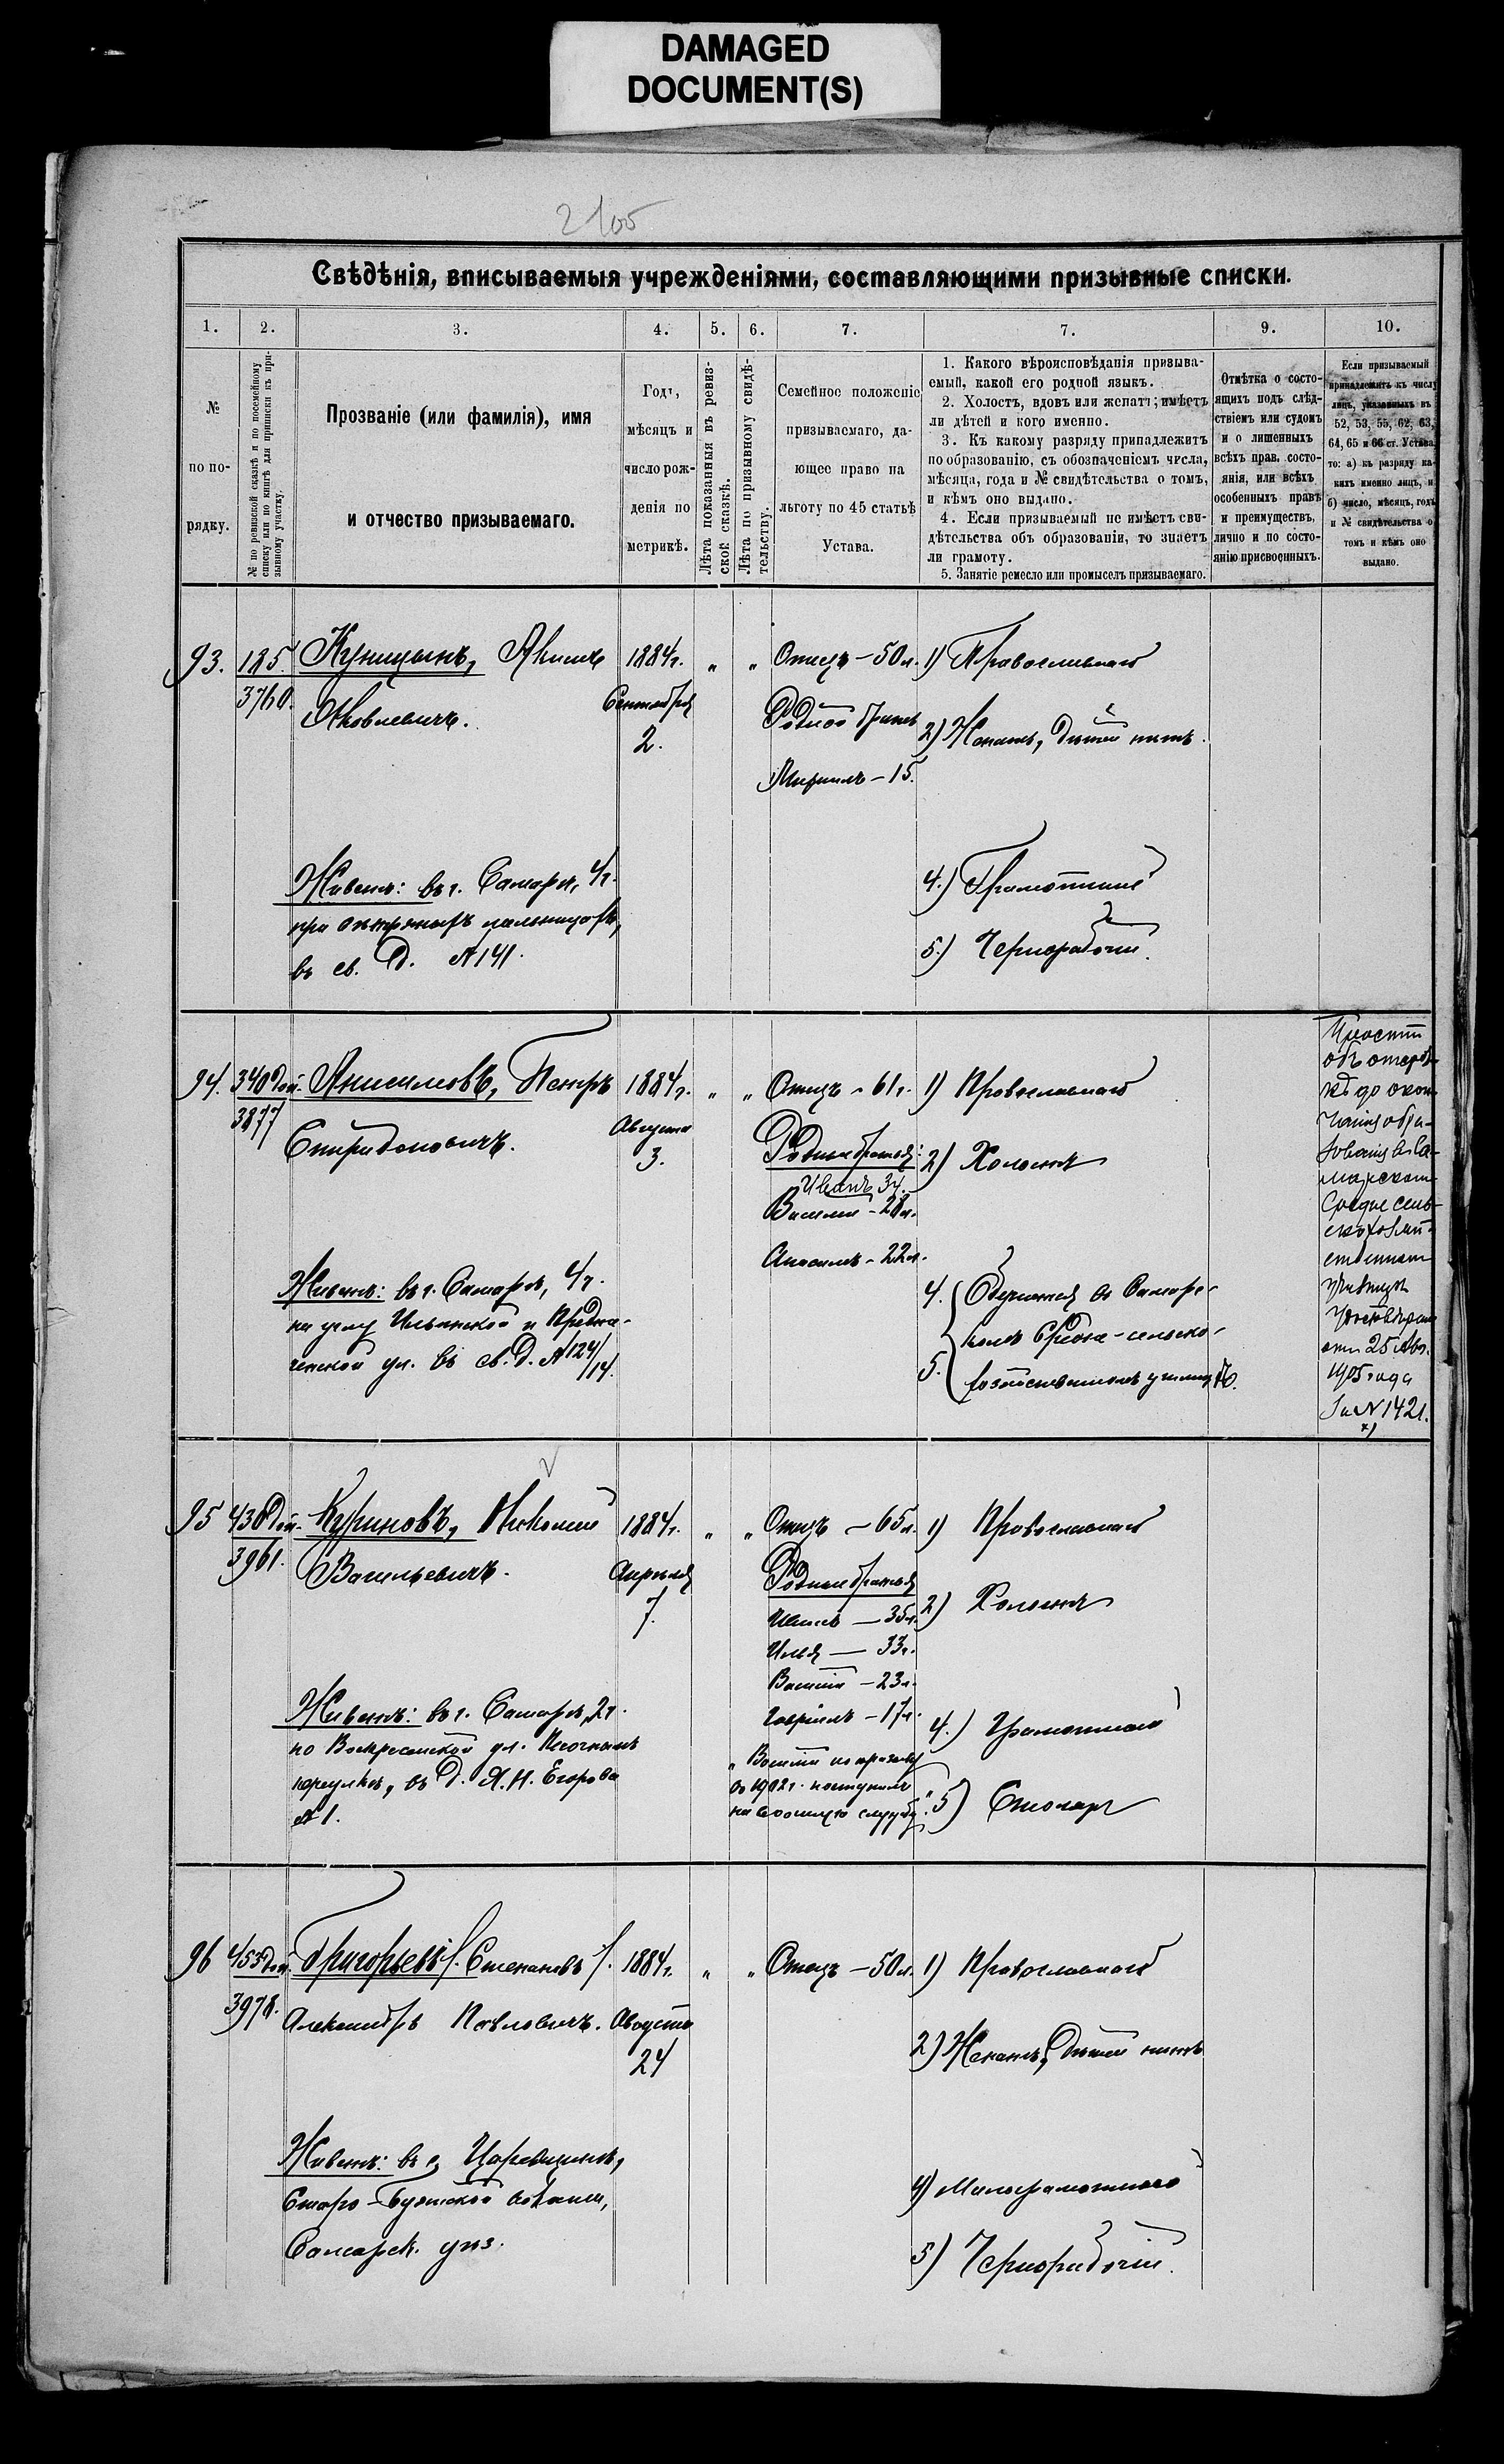 DAMAGED
DOCUMENT(S)
Свѣдѣнія, вписываемыя учрежденіями, составляющими призывные списки.
1. 2. 3. 4. 5. 6. 7. 7. 9. 10.
№
по по-
рядку.
№ по ревизской сказкѣ и по посемейному
списку или по книгѣ для приписки къ при-
зывному участку.
Прозваніе (или фамилія), имя
и отчество призываемаго.
Годъ,
мѣсяцъ и
число рож-
денія по
метрикѣ.
Лѣта показанныя въ ревиз-
ской сказкѣ.
Лѣта по призывному свидѣ-
тельству.
Семейное положеніе
призываемаго, да-
ющее право на
льготу по 45 статьѣ
Устава.
1. Какого вѣроисповѣданія призыва-
емый, какой его родной языкъ.
2. Холостъ, вдовъ или женатъ; имѣетъ
ли дѣтей и кого именно.
3. Къ какому разряду принадлежитъ
по образованію, съ обозначеніемъ числа,
мѣсяца, года и № свидѣтельства о томъ,
и кѣмъ оно выдано.
4. Если призываемый не имѣетъ сви-
дѣтельства объ образованіи, то знаетъ
ли грамоту.
5. Занятіе ремесло или промыселъ призываемаго.
Отмѣтка о состо-
ящихъ подъ слѣд-
ствіемъ или судомъ
и о лишенныхъ
всѣхъ прав. состо-
янія, или всѣхъ
особенныхъ правъ
и преимуществъ,
лично и по состо-
янію присвоенныхъ.
Если призываемый
принадлежитъ къ числу
лицъ, указанныхъ въ
52, 53, 55, 62, 63,
64, 65 и 66 ст. Устава,
то: а) къ разряду ка-
кихъ именно лицъ, и
б) число, мѣсяцъ, годъ
и № свидѣтельства о
томъ и кѣмъ оно
выдано.
93.
185
3760.
Куницынъ, Акимъ
Яковлевичъ.
Живетъ: въ г. Самарѣ, 4 ч.
въ св. д. № 141.
1884 г.
Сентября
2.
" "
Отецъ - 50 л.
Родной братъ
1) Православнаго
2) Женатъ, дѣтей нѣтъ.
4.) Грамотный
5.) Чернорабочій.
94.
340 дой.
3877
Анисимовъ, Петръ
Спиридоновичъ.
Живетъ: въ г. Самарѣ, 4 ч.
на углу Ильинской и Предте-
ченской ул. въ св. д. № 124/14.
1884 г.
Августа
3.
" "
Отецъ - 61 г.
Родные братья:
Иванъ 34.
Василій - 28 л.
22 л.
1) Православнаго
2) Холостъ
4. Обучается въ Самар-
скомъ Средне-сельско-
5. хозяйственномъ училищѣ.
объ отсроч-
кѣ до окон-
чанія обра-
зованія въ Са-
марскомъ
Средне сель-
скохозяй-
ственномъ
училищѣ
отъ 25 Авг.
1905 года
за № 1421.
95
438 дой.
3961.
Куриновъ, Николай
Васильевичъ.
Живетъ: въ г. Самарѣ, 2 ч.
по Воскресенской ул. Песочномъ
переулкѣ, въ д. Я. И. Егорова
№ 1.
1884 г.
Апрѣля
7.
" "
Отецъ - 65 л.
Родные братья
Иванъ - 35 л.
Илья - 33 г.
Василій - 23 л.
Гавріилъ - 17 л.
" Василій по призыву
въ 1902 г. поступилъ
на военную службу."
1) Православнаго
2) Холостъ
4.) Грамотный
5) Столяръ
96
453 дой.
3978.
Григорьевъ /. Степановъ /.
Александръ Павловичъ.
Живетъ: въ с. Царевщинѣ,
Старо-Буянской волости,
Самарск. уѣз.
1884 г.
Августа
24
" "
Отецъ - 50 л.
1) Православнаго
2) Женатъ, дѣтей нѣтъ
4) Малограмотный
5) Чернорабочій.